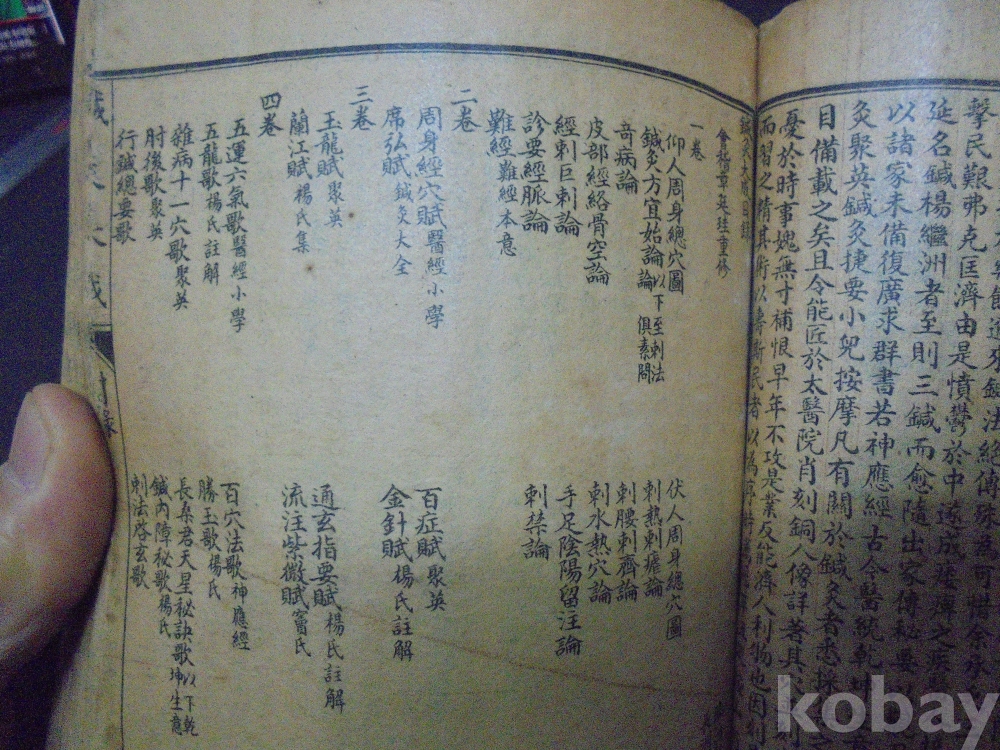 擊民艱弗克匡濟由是憤鬱於中遂成
延名鍼楊繼洲者至則三鍼而愈隨出家傳秘要
以諸家未備復廣求群書若神應經古今醫統乾坤
灸聚英鍼灸捷要小兒按摩凡有關於鍼灸者悉採
目備載之矣且令能匠於太醫院肖刻銅人像詳著其
憂於時事媿無寸補恨早年不攻是業反能濟人利物也因
而習之精其術以壽斯民者
鍼灸大成目錄
會稽章廷珪重修
一卷
仰人周身總穴圖 伏人周身總穴圖
鍼灸方宜始論以下至刺法論俱素問 刺熱刺瘧論
奇病論 刺腰刺齊論
皮部經絡骨空論 刺水熱穴論
經刺巨刺論 手足陰陽留注論
診要經脈論 刺禁論
難經難經本意
二卷
周身經穴賦醫經小學 百症賦聚英
席弘賦鍼灸大全 金針賦楊氏註解
三卷
玉龍賦聚英 通玄指要賦楊氏註解
蘭江賦楊氏集 流注紫微賦竇氏
四卷
五運六氣歌醫經小學 百穴法歌神應經
五龍歌楊氏註解 勝玉歌楊氏
雜病十一穴歌聚英 長桑君天星秘訣歌以下乾坤生意
肘後歌聚英 鍼內障秘歌楊氏
行鍼總要歌 刺法啓玄歌
目錄
kobay